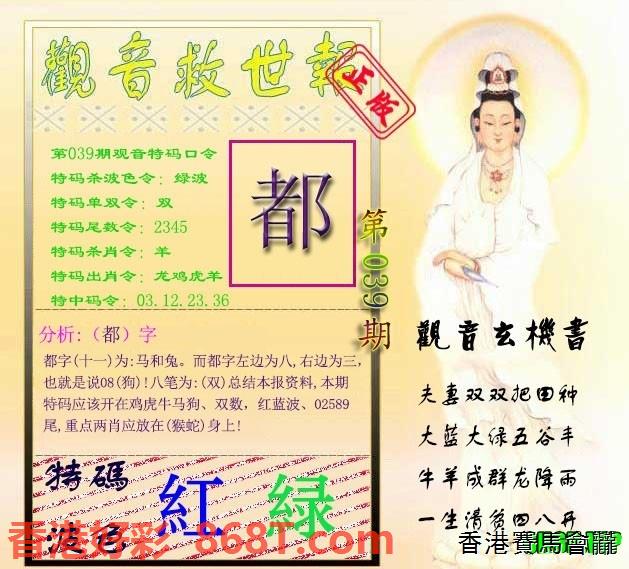 觀音救世報
正版
第039期观音特码口令
特码杀波色令：绿波
特码单双令：双
特码尾数令：2345
特码杀肖令：羊
特码出肖令：龙鸡虎羊
特中码令：03.12.23.36
都
第039期
分析:（都）字
都字(十一)为:马和兔。而都字左边为八,右边为三,
也就是说08(狗)!八笔为:(双)总结本报资料,本期
特码应该开在鸡虎牛马狗、双数，红蓝波、02589
尾,重点两肖应放在(猴蛇)身上!
特碼
波色
紅 绿
觀音玄機書
夫妻双双把田种
大蓝大绿五谷丰
牛羊成群龙降雨
一生清贫四八开
香港好彩 868T.com
香港賽馬會